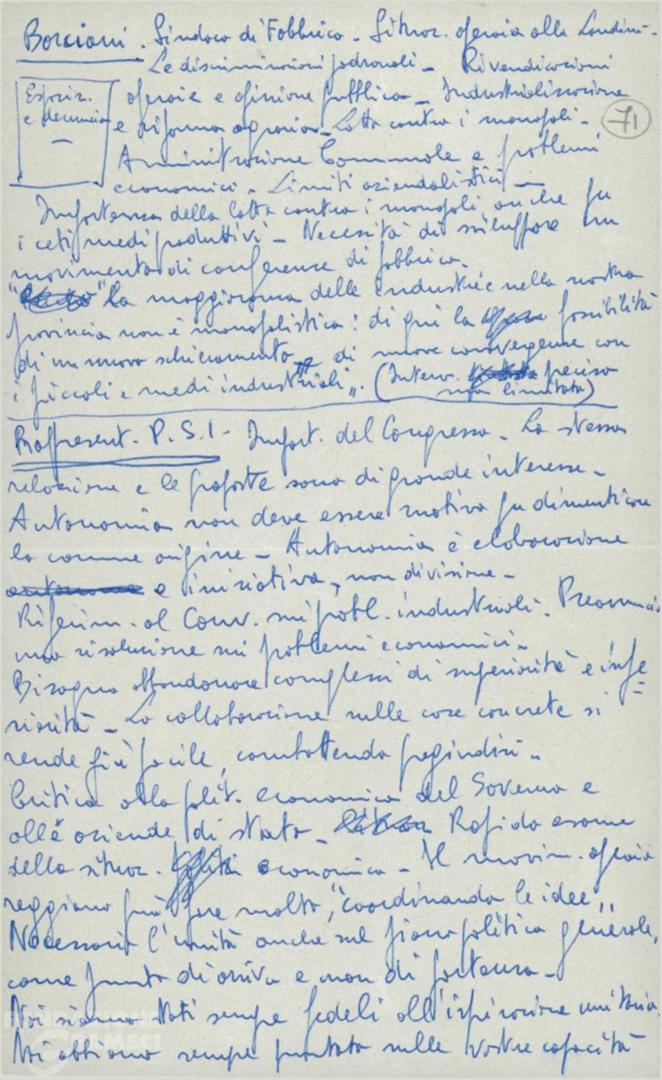 Borciani. Sindaco di Fabbrico. Situaz. operaia alla Landini.
Le discriminazioni padronali - Rivendicazioni
operaie e opinione pubblica - Industrializzazione
e riforma agraria - Lotta contro i monopoli -
71
Amministrazione Comunale e problemi
economici. Limiti aziendalistici -
e denuncia
Importanza della lotta contro i monopoli anche per
i ceti medi produttivi - Necessità di sviluppare un
movimento di conferenze di fabbrica.
"La maggioranza delle industrie nella nostra
provincia non è monopolistica: di qui la possibilità
di un nuovo schieramento, di nuove convergenze con
i piccoli e medi industriali". (Interv. preciso
ma limitato)
Rappresent. P.S.I - Import. del Congresso - La stessa
relazione e le proposte sono di grande interesse -
Autonomia non deve essere motivo per dimenticare
la comune origine - Autonomia è elaborazione
e iniziativa, non divisione -
Riferim. al Conv. sui probl. industriali. Preannuncia
una risoluzione sui problemi economici -
Bisogna abbandonare complessi di superiorità e infe
riorità - La collaborazione sulle cose concrete si
rende più facile, combattendo pregiudizi -
Critica alla polit. economica del Governo e
alle aziende di stato - Rapido esame
della situaz. economica - Il movim. operaio
reggiano può fare molto, "coordinando le idee"
Necessaria l'unità anche sul piano politico generale,
come punto di arrivo e non di partenza -
Noi siamo stati sempre fedeli all'ispirazione unitaria.
Noi abbiamo sempre puntato sulle vostre capacità